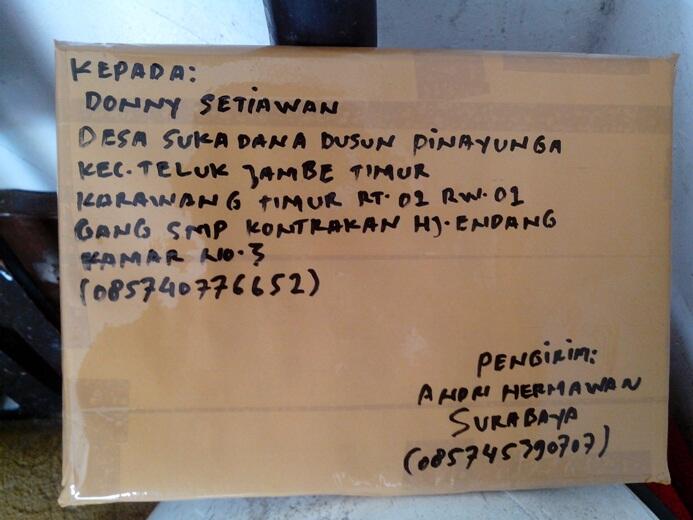 KEPADA:
DONNY SETIAWAN
DESA SUKADANA DUSUN PINAYUNGA
KEC. TELUK JAMBE TIMUR
KARAWANG TIMUR RT. 01 RW. 01
GANG SMP KONTRAKAN HJ. ENDANG
KAMAR NO. 3
(085740776652)
PENGIRIM:
ANDRI HERMAWAN
SURABAYA
(085745390707)